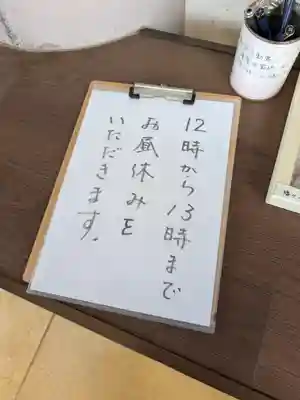 12時から13時まで
お昼休みを
いただきます。